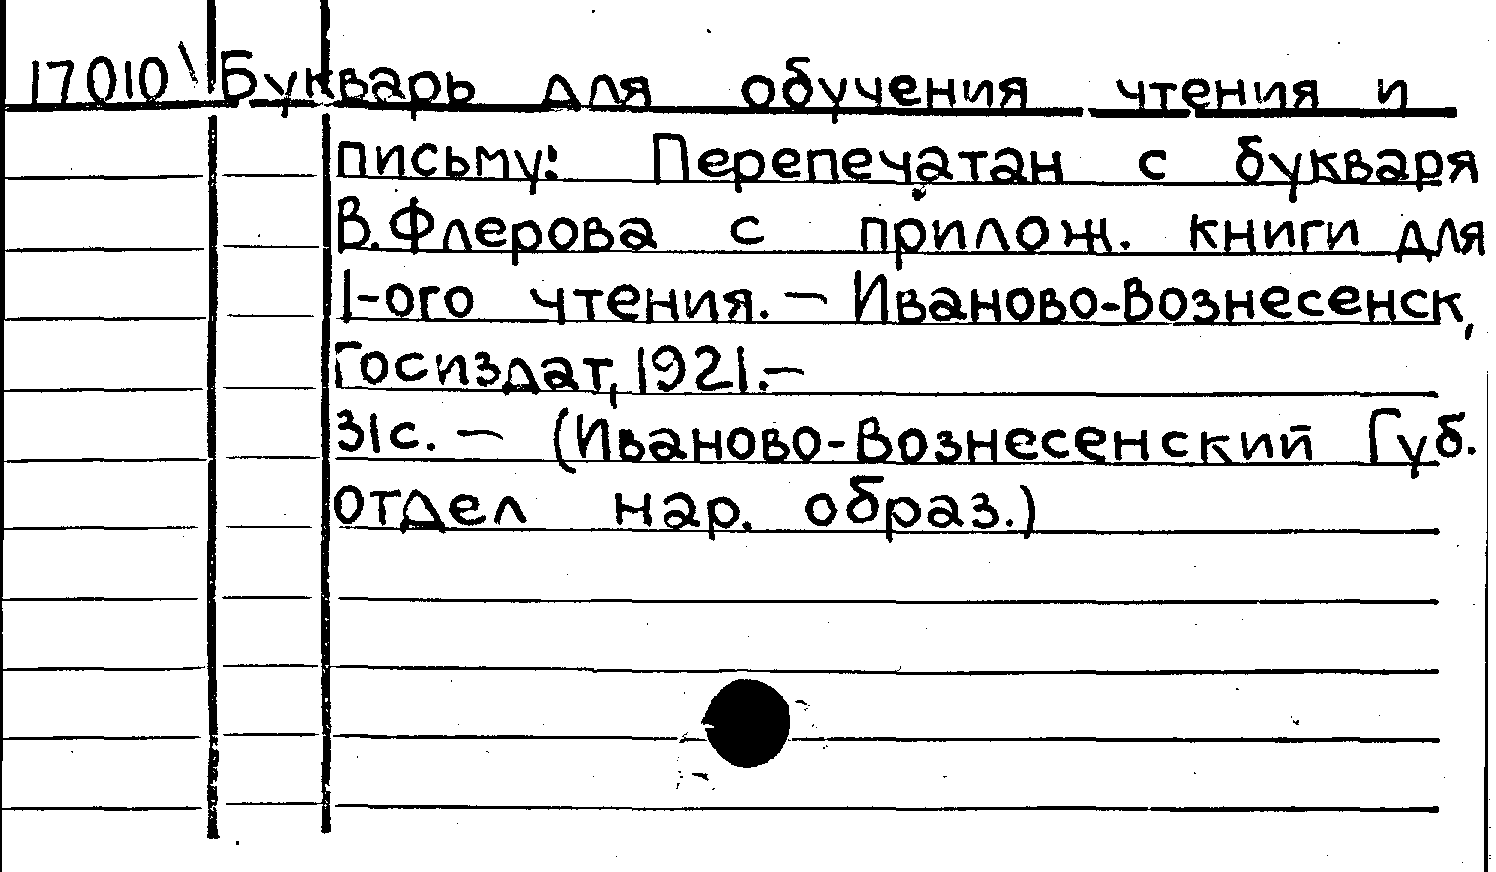 17010\ Букварь для обучения чтения и
письму: Перепечатан с букваря
В.Флерова с прилож. книги для
1-ого чтения. – Иваново-Вознесенск,
Госиздат, 1921.–
31с. – (Иваново-Вознесенский Губ.
отдел нар. образ.)